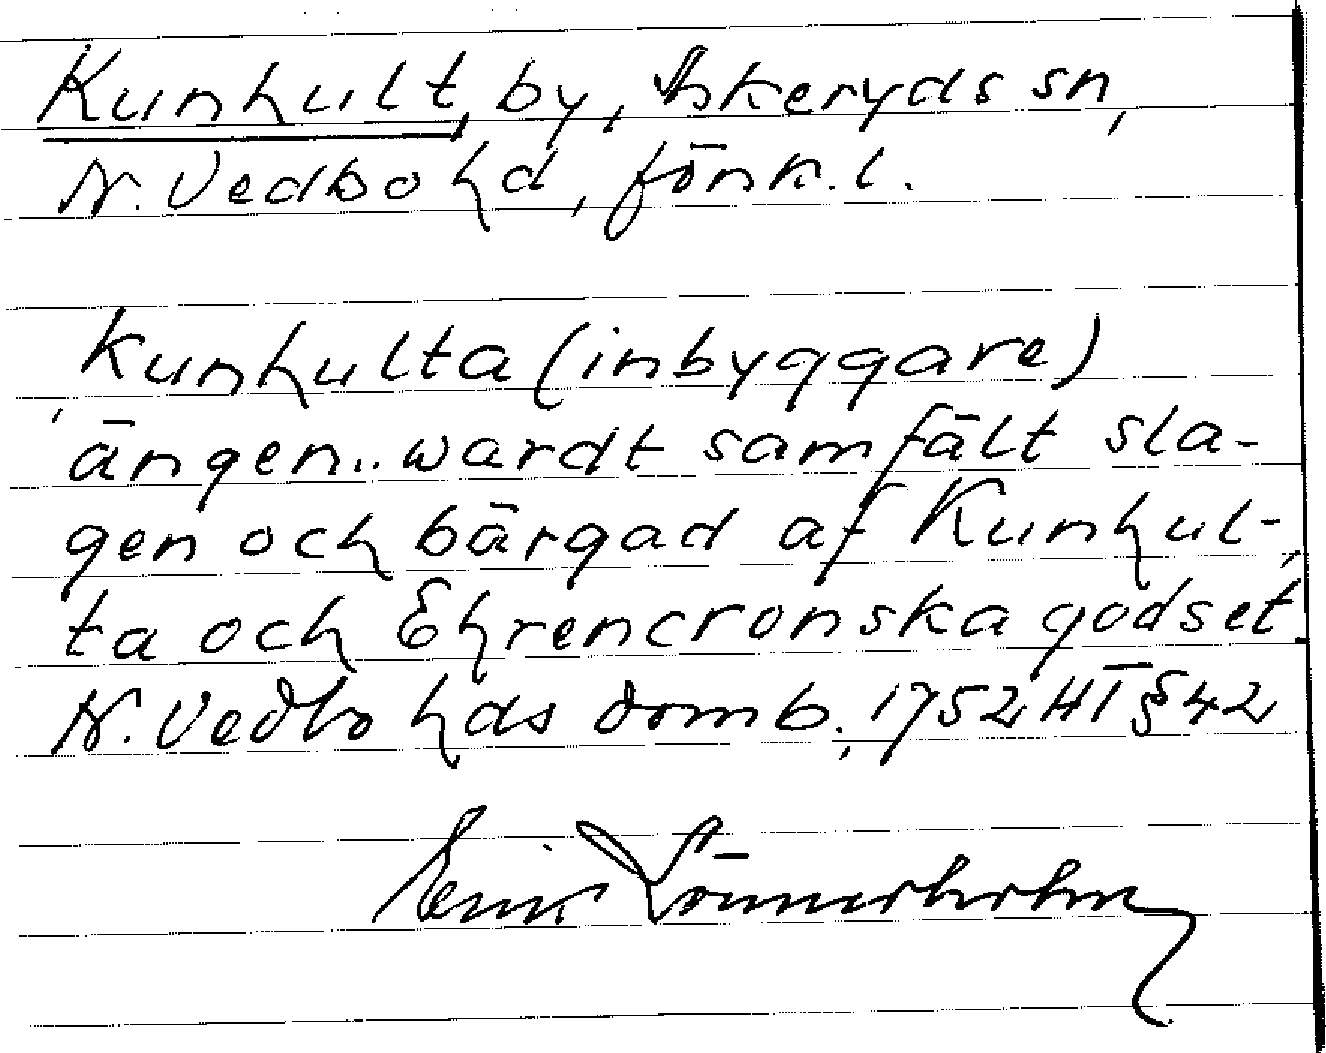 Kunhult, by, Askeryds sn,
N. Vedbo hd, Jönk. l.
Kunhulta (inbyggare)
ängen.. wardt samfält sla-
gen och bärgad af Kunhul-
ta och Ehrencronska godset.
N. Vedbo hds domb., 1752 HT § 42